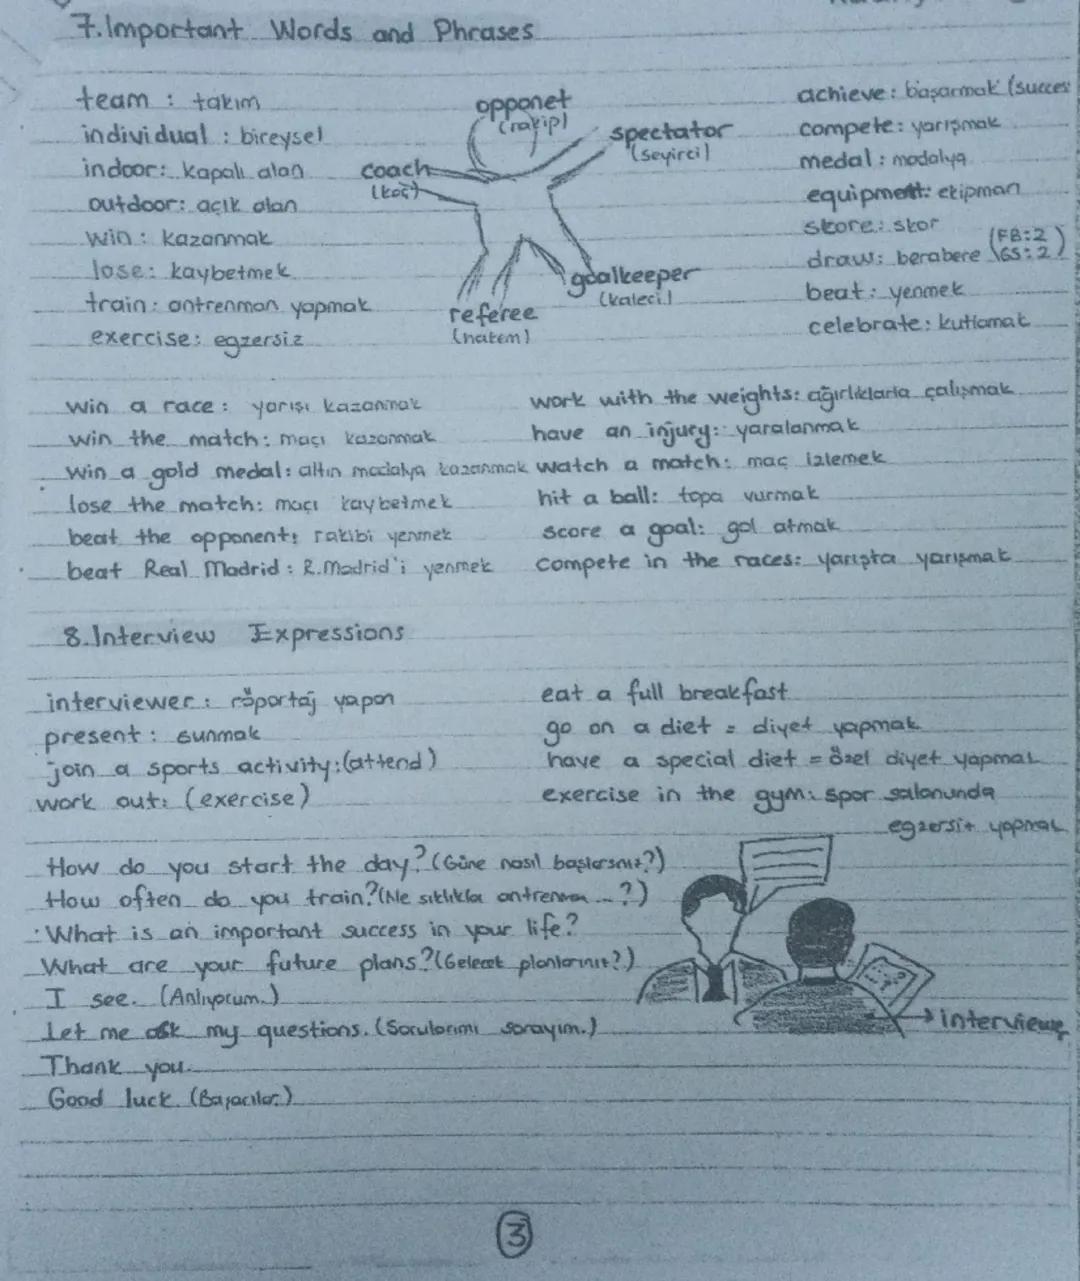 7.Important Words and Phrases
team : takım
individual : bireysel
indoor: kapalı alan
outdoor: açık alan
win: kazanmak
lose: kaybetmek
train: antrenman yapmak
exercise: egzersiz
opponet
(rakip)
spectator
(seyirci)
coach
(koç)
goalkeeper
(kaleci)
referee
(hakem)
achieve: başarmak (succes
compete: yarışmak
medal: madalya
equipment: ekipman
skore: skor
draw: berabere (FB:2 GS:2)
beat: yenmek
celebrate: kutlamak
win a race: yarışı kazanmak
win the match: maçı kazanmak
win a gold medal: altın madalya kazanmak
lose the match: maçı kaybetmek
beat the opponent: rakibi yenmek
beat Real Madrid: R.Madrid'i yenmek
work with the weights: ağırlıklarla çalışmak
have an injury: yaralanmak
watch a match: maç izlemek
hit a ball: topa vurmak
score a goal: gol atmak
compete in the races: yarışta yarışmak
8.Interview Expressions
interviewer: röportaj yapan
present: sunmak
join a sports activity:(attend)
work out: (exercise)
eat a full breakfast
go on a diet = diyet yapmak
have a special diet = özel diyet yapmak
exercise in the gym: spor salonunda
egzersiz yapmak
How do you start the day? (Güne nasıl başlarsınız?)
How often do you train? (Ne sıklıkla antrenman ...?)
What is an important success in your life?
What are your future plans? (Gelecek planlarınız?)
I see. (Anlıyorum.)
Let me ask my questions. (Sorularımı sorayım.)
Thank you.
Good luck. (Başarılar.)
interviewer
3